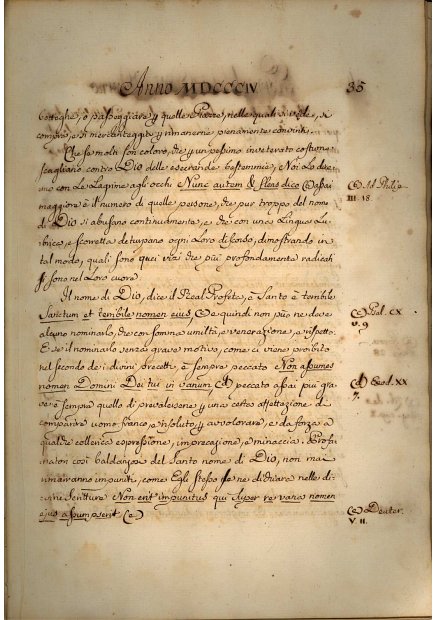 Anno MDCCCIV 35
botteghe, o passeggiare p quelle Piazze, nelle quali si vende, si
compra, e si mercanteggia, p rimanerne pienamente convinti.
Che se molti son coloro, che p un pessimo inveterato costume
scagliano contro Dio delle esecrande bestemmie, Noi lo dicia
mo con le Lagrime agli occhi Nunc autem & flens dico assai
maggiore è il numero di quelle persone, che pur troppo del nome
di Dio si abusano continuamente, e che con una Lingua Lu
brica, e scorretta deturpano ogni Loro discorso, dimostrando in
tal modo, quali sono que' vizi che più profondamente radicati
si sono nel Loro cuore.
Il nome di Dio, dice il Real Profeta, è Santo è terribile
Sanctum et terribile nomen eius (c) e quindi non può ne deve
alcuno nominarlo, che con somma umiltà, e venerazione, e rispetto
E se il nominarlo senza grave motivo, come ci viene proibito
nel secondo de' divini precetti, è sempre peccato Non assumes
nomen Domini Dei tui in vanum (d) peccato assai più gra
ve è sempre quello di prevalersene p una certa affettazione di
comparire uomo franco, e risoluto, p avvalorare, e da forza a
qualche collerica espressione, imprecazione, e minaccia. Profa
natori così baldanzosi del Santo nome di Dio, non mai
rimarranno impuniti, come Egli stesso se ne dichiara nelle di
vine Scritture Non erit impunitus qui super re vana nomen
ejus assumpserit (e)
Ad Philip.
III. 18.
(c) Psal. CX
v. 9
(d) Exod. XX
7.
(e) Deuter.
V II.